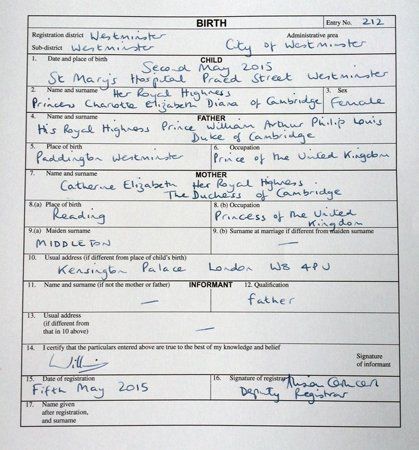 BIRTH
Entry No. 212
Registration district Westminster
Administrative area
Sub-district Westminster
City of Westminster
1. Date and place of birth
CHILD
Second May 2015
St Mary's Hospital Praed Street Westminster
2. Name and surname Her Royal Highness
3. Sex
Princess Charlotte Elizabeth Diana of Cambridge
Female
4. Name and surname
FATHER
His Royal Highness Prince William Arthur Philip Louis
Duke of Cambridge
5. Place of birth
6. Occupation
Paddington Westminster
Prince of the United Kingdom
7. Name and surname
MOTHER
Catherine Elizabeth Her Royal Highness
The Duchess of Cambridge
8.(a) Place of birth
8. (b) Occupation
Reading
Princess of the United
Kingdom
9.(a) Maiden surname
9. (b) Surname at marriage if different from maiden surname
MIDDLETON
—
10. Usual address (if different from place of child's birth)
Kensington Palace London W8 4PU
11. Name and surname (if not the mother or father)
INFORMANT
12. Qualification
—
Father
13. Usual address
(if different from
that in 10 above)
—
14. I certify that the particulars entered above are true to the best of my knowledge and belief
William
Signature
of informant
15. Date of registration
16. Signature of registrar
Fifth May 2015
Deputy Registrar
17. Name given
after registration,
and surname